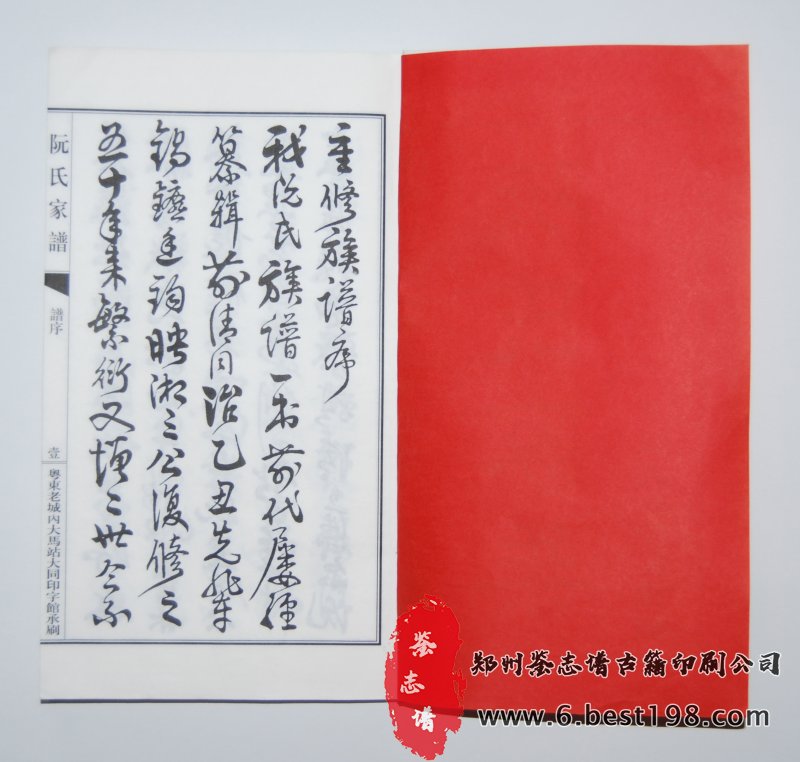 重修族谱序
我阮氏族谱一书前代屡经
纂辑前清同治乙丑先辈
镜蓬廷钧映湘三公复修之
五十年来繁衍又增二世今不
阮氏家譜
譜序
壹
粤東老城内大馬站大同印字館承刷
鉴志谱
郑州鉴志谱古籍印刷公司
www.6.best198.com